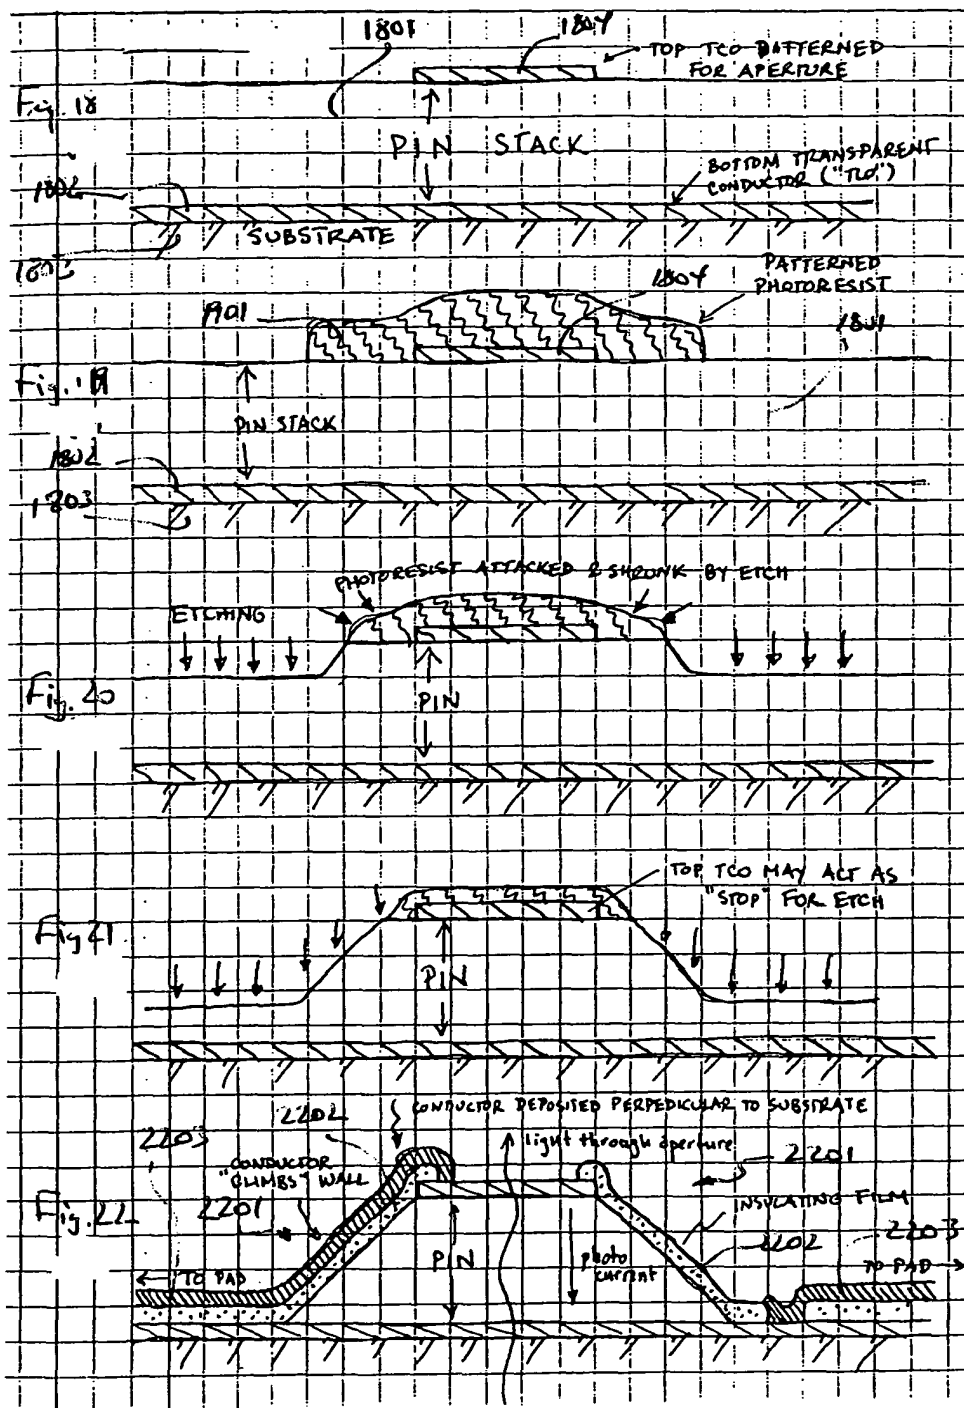 1801
1804
TOP TCO PATTERNED
FOR APERTURE
Fig. 18
PIN STACK
BOTTOM TRANSPARENT
CONDUCTOR ("TCO")
1802
SUBSTRATE
1804
PATTERNED
PHOTORESIST
1901
1801
Fig. 19
PIN STACK
1802
1803
PHOTORESIST ATTACKED & SHRUNK BY ETCH
ETCHING
Fig. 20
PIN
TOP TCO MAY ACT AS
"STOP" FOR ETCH
Fig 21
PIN
2202
CONDUCTOR DEPOSITED PERPEDICULAR TO SUBSTRATE
2203
light through aperture
2201
"CONDUCTOR
CLIMBS" WALL
INSULATING FILM
Fig. 22
2201
2202
2203
PIN
photo
current
TO PAD
TO PAD